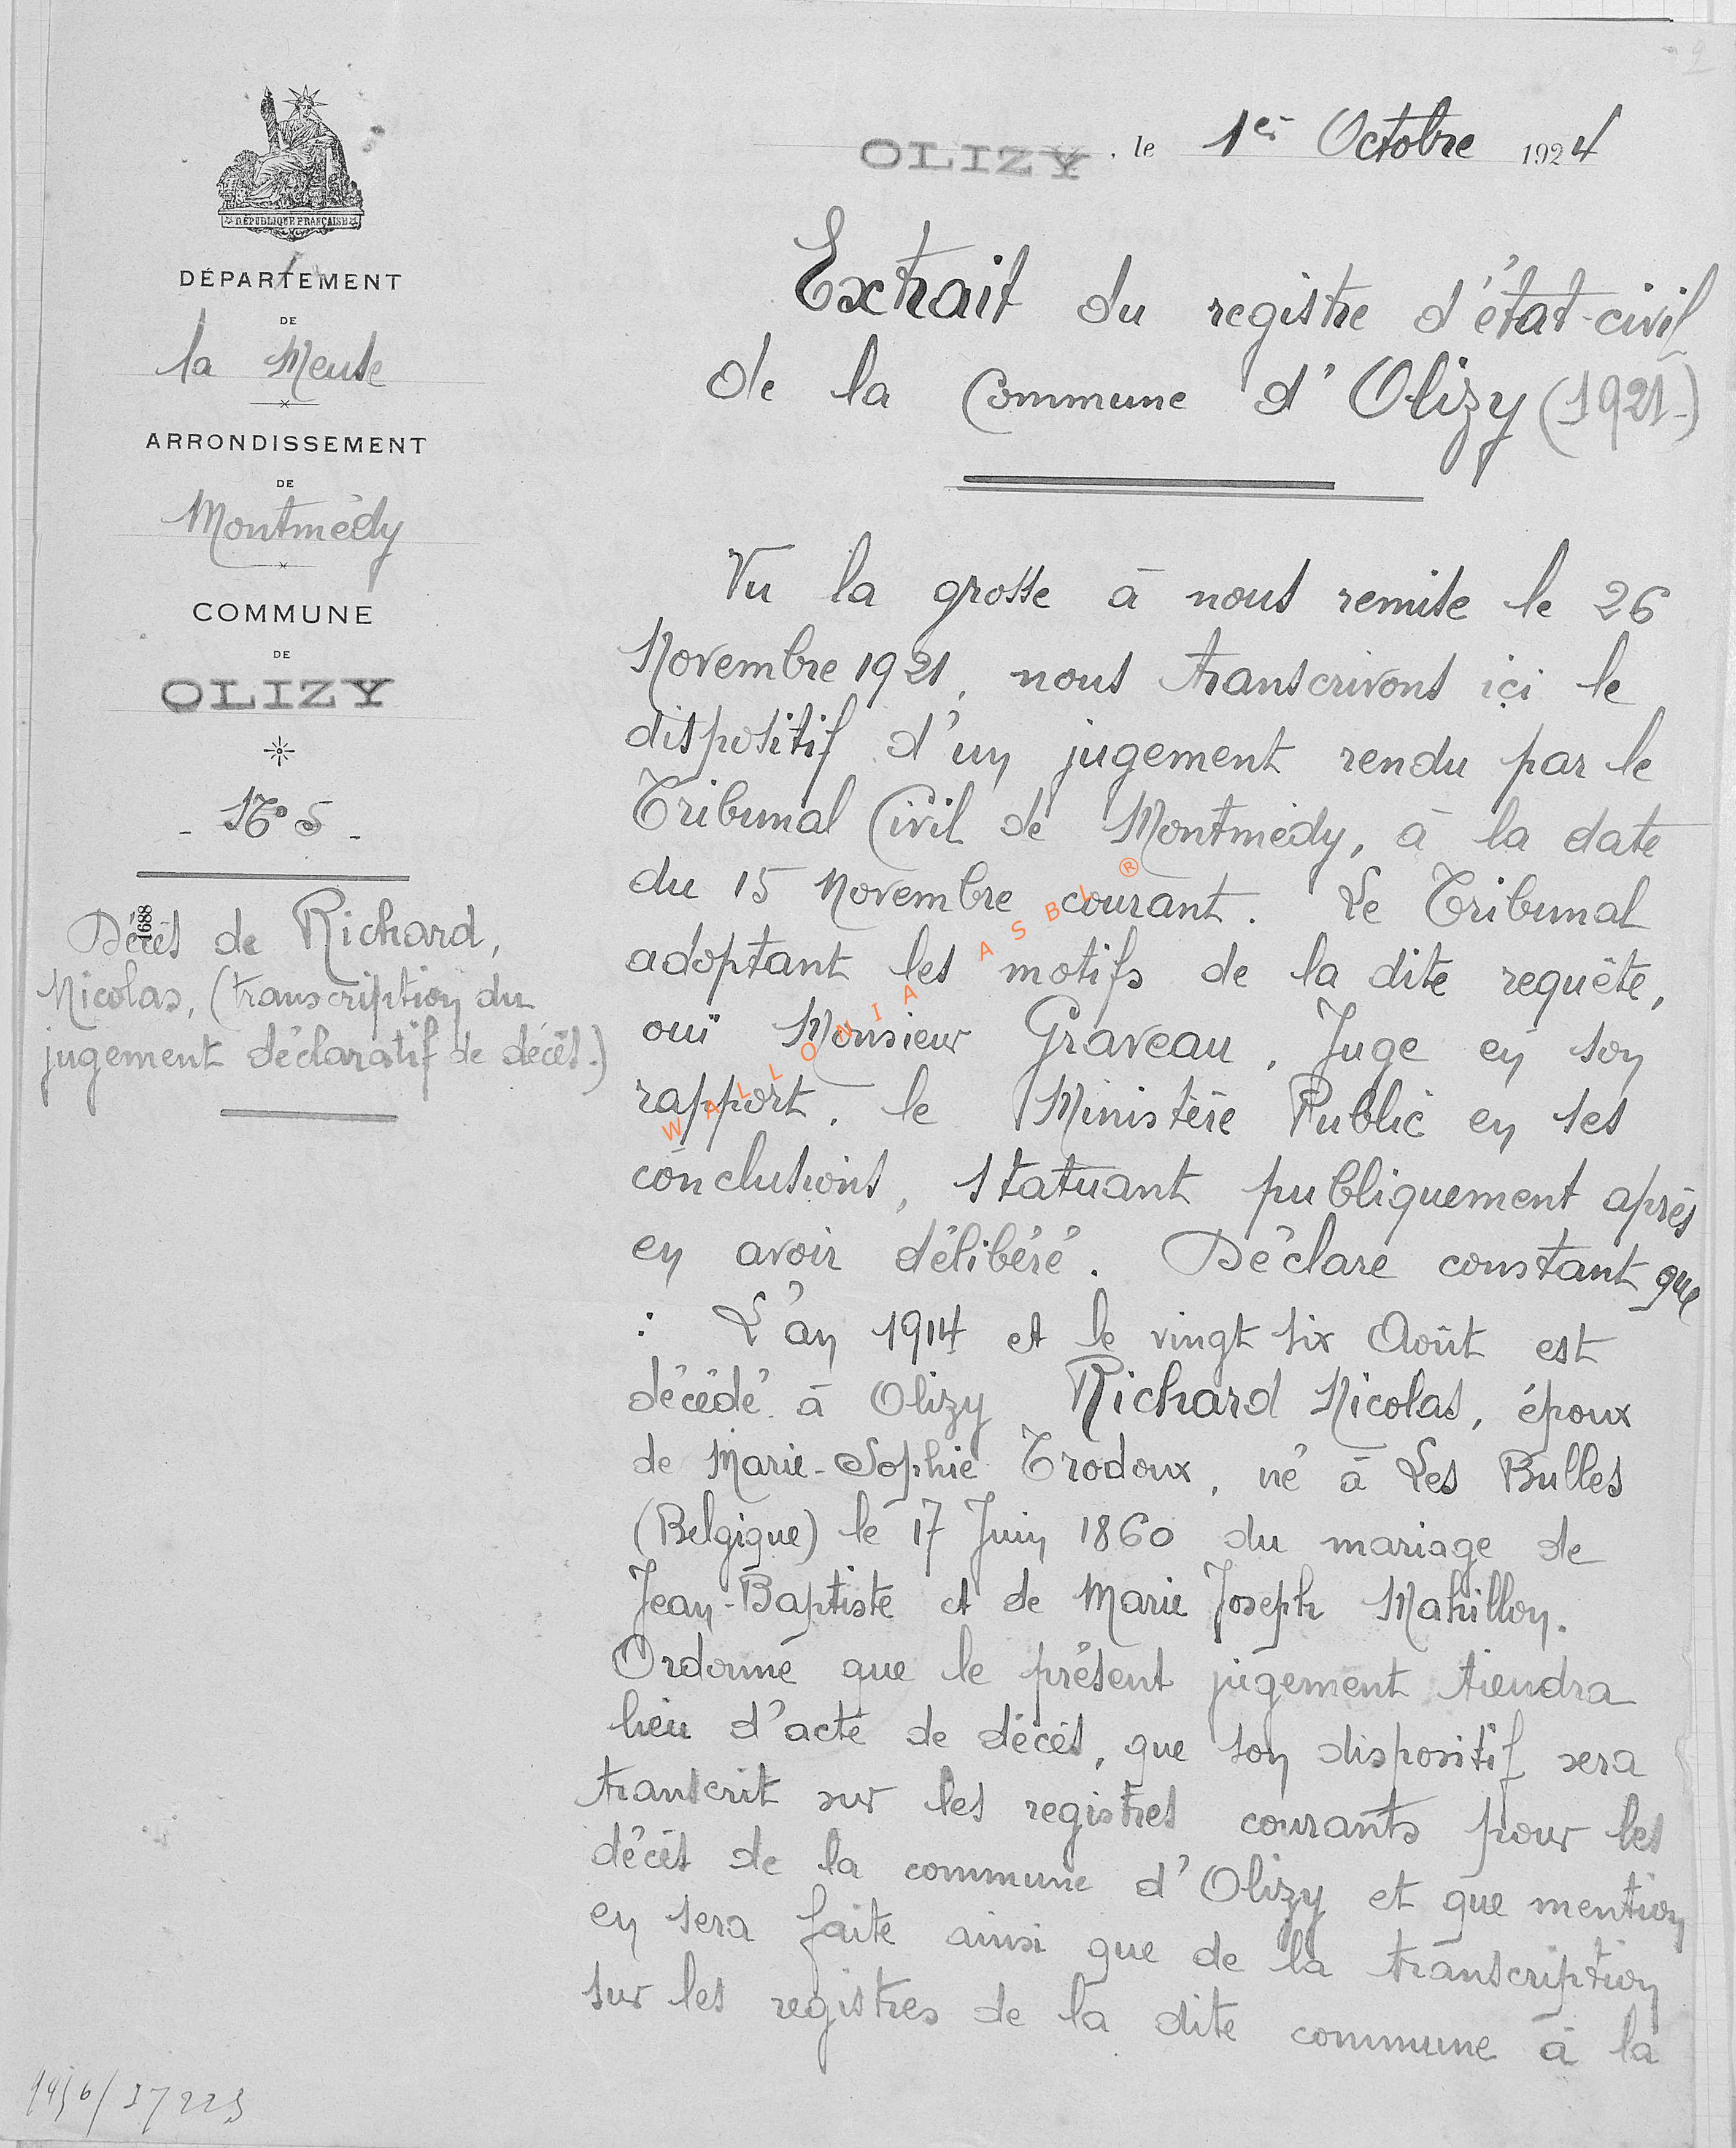 RÉPUBLIQUE FRANÇAISE
DÉPARTEMENT
DE
la Meuse
ARRONDISSEMENT
DE
Montmédy
COMMUNE
DE
OLIZY
- N° 5 -
1688
Décès de Richard,
Nicolas, (transcription du
jugement déclaratif de décès.)
OLIZY, le 1er Octobre 1924
Extrait du registre d'état-civil
de la Commune d'Olizy (1921-)
Vu la grosse à nous remise le 26
Novembre 1921, nous transcrivons ici le
dispositif d'un jugement rendu par le
Tribunal Civil de Montmédy, à la date
du 15 Novembre courant. Le Tribunal
adoptant les motifs de la dite requête,
ouï Monsieur Graveau, Juge en son
rapport, le Ministère Public en ses
conclusions, statuant publiquement après
en avoir délibéré. Déclare constant que
: L'an 1914 et le vingt six Août est
décédé à Olizy Richard Nicolas, époux
de Marie-Sophie Trodoux, né à Les Bulles
(Belgique) le 17 Juin 1860 du mariage de
Jean-Baptiste et de Marie Joseph Mahillon.
Ordonne que le présent jugement tiendra
lieu d'acte de décès, que son dispositif sera
transcrit sur les registres courants pour les
décès de la commune d'Olizy et que mention
en sera faite ainsi que de la transcription
sur les registres de la dite commune à la
WALLONIA ASBL ®